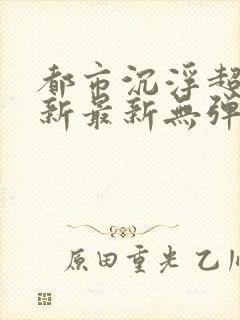 都市沉浮超
新最新無弹
原田重光 乙川